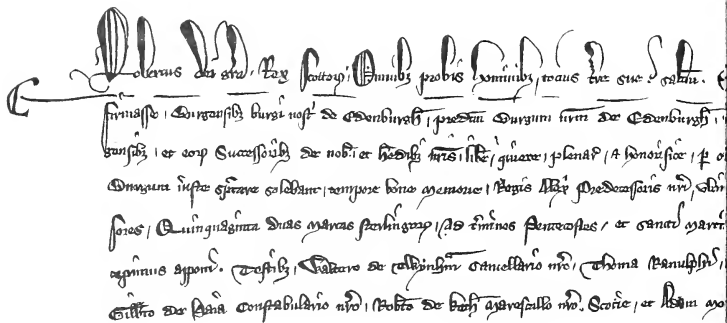 Robertus dei grã Rex Scottoꝝ Omnibȝ probis hominibȝ tocius t're sue saltm̃
firmasse Burgensibȝ burgi nosť de Edenburgh predc̃m Burgum nrm̃ de Edenburgh
gensibȝ et eoꝝ Successoribȝ de nobis et hedibȝ nr̃is libe quiete plenar' & honorifice P
Burgum iuste sp̃tare solebant tempore bone memorie Regis Alex̃i Predecessoris nr̃i
sores Quinquaginta duas marcas sterlingoꝝ Ad t'minos Pentecostes et sancti Marti
apponi Testibȝ Waltero de Twynhm̃ Cancellario nr̃o Thoma Ranulphi
Gilb̃to de Haia Constabulario nr̃o Rob̃to de keth Marescallo nr̃o Scocie et Adam mo